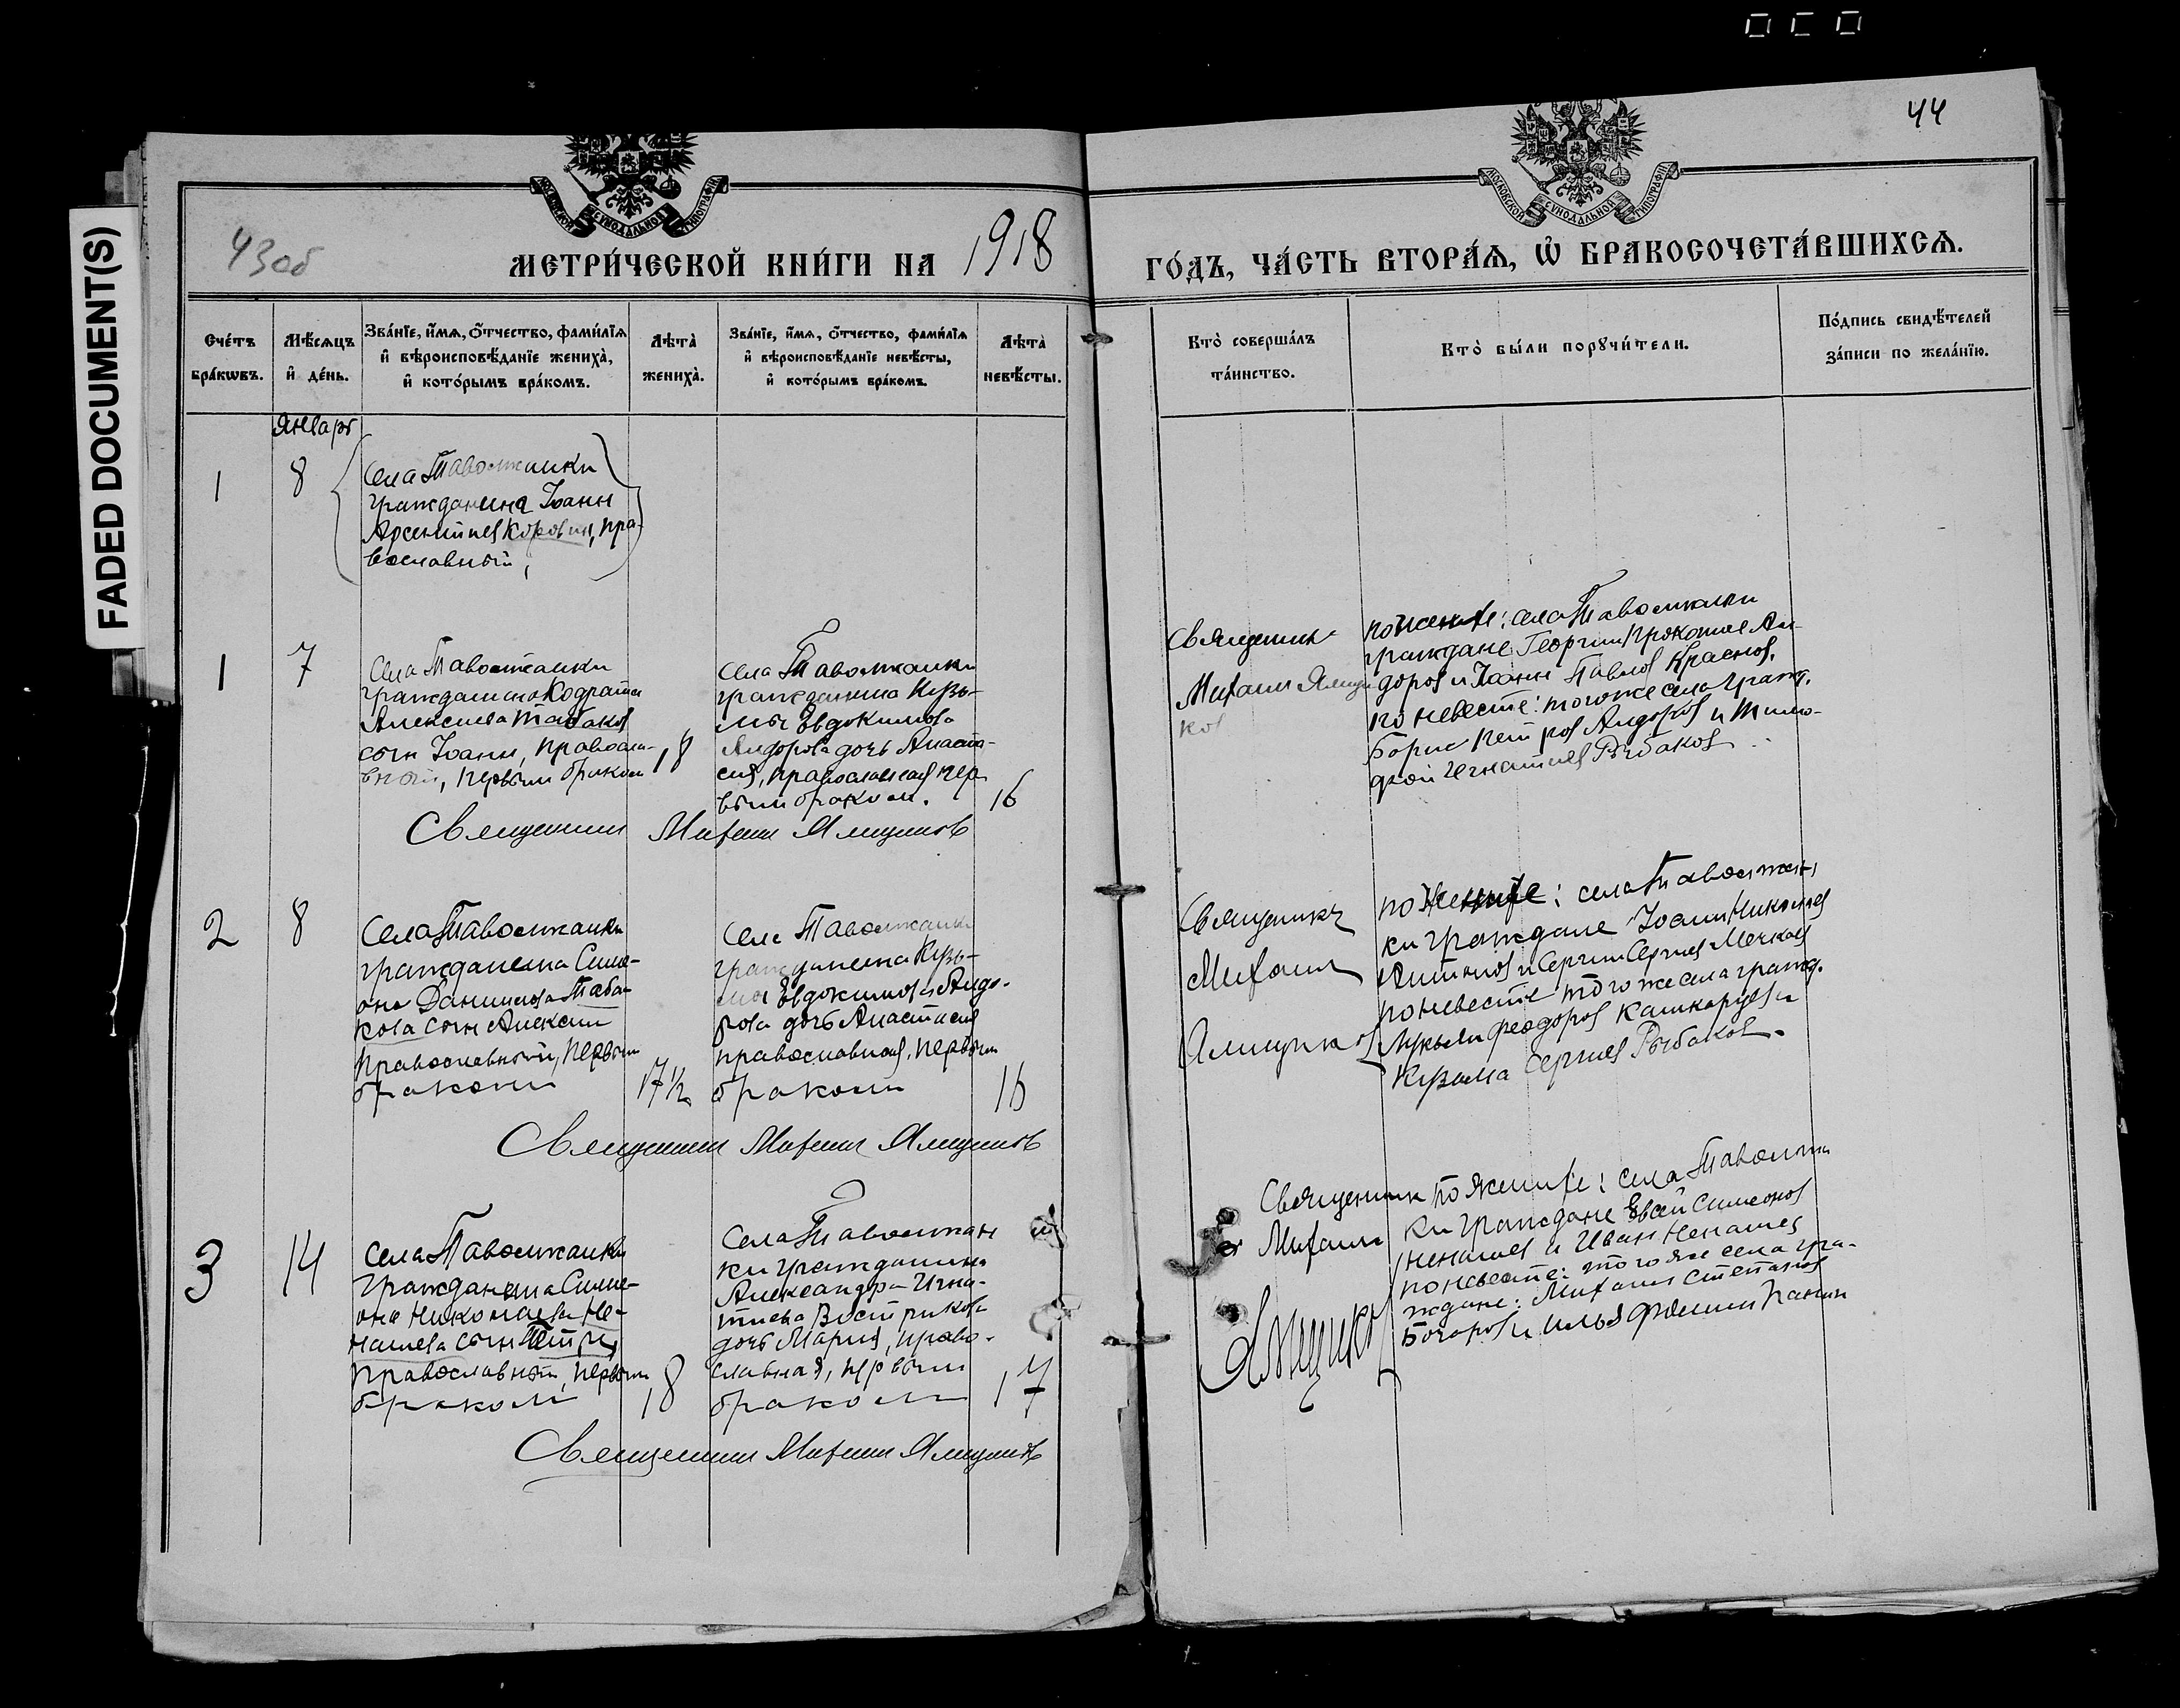 44
43об
МОСКОВСКОЙ СѴНОДАЛЬНОЙ ТИПОГРАФІИ
МОСКОВСКОЙ СѴНОДАЛЬНОЙ ТИПОГРАФІИ
FADED DOCUMENT(S)
МЕТРИ́ЧЕСКОЙ КНИ́ГИ НА 1918
ГО́ДЪ, ЧА́СТЬ ВТОРА́Ѧ, Ѽ БРАКОСОЧЕТА́ВШИХСѦ.
Сче́тъ бра́кѡвъ.
Мѣ́сѧцъ и҆ де́нь.
Зва́нїе, и҆́мѧ, ѻ҆́тчество, фами́лїѧ
и҆ вѣроисповѣ́данїе жениха̀,
и҆ кото́рымъ бра́комъ.
Лѣта̀ жениха̀.
Зва́нїе, и҆́мѧ, ѻ҆́тчество, фами́лїѧ
и҆ вѣроисповѣ́данїе невѣ́сты,
и҆ кото́рымъ бра́комъ.
Лѣта̀ невѣ́сты.
Кто̀ соверша́лъ
та́инство.
Кто̀ бы́ли порꙋчи́тели.
По́дпись свидѣ́телей
за́писи по жела́нїю.
Январь
1
8
Села Таволжанки
гражданина Іоанн
Арсентиев Коровин, пра-
вославный,
1
7
Села Таволжанки
гражданина Кодрата
Алексиева Табаков
сын Іоанн, правосла-
вный, первым браком
18
Села Таволжанки
гражданина Кузь-
мы Евдокимова
Андорова дочь Анаста-
сия, православная пер
вым браком.
16
Священник Михаил Ямщиков
Священник
Михаил Ямщи
ков
по женихе: села Таволжанки
граждане Георгий Прокопиев Ан-
доров и Іоанн Павлов Краснов,
по невесте: того же села гражд.
Борис Петров Андоров и Тимо-
фей Игнатиев Рыбаков
2
8
Села Таволжанки
гражданина Симе-
она Даниилова Таба-
кова сын Алексей
православный, первым
браком
17 ½
Села Таволжанки
гражданина Кузь-
мы Евдокимова Андо-
рова дочь Анастасия
православная, первым
браком
16
Священник Михаил Ямщиков
Священникъ
Михаил
Ямщиков
по женихе: села Таволжан
ки граждане Іоанн Николаев
Антонов и Сергий Сергиев Мечков
по невесте того же села гражд.
Лукьян Феодоров и
Кузьма Сергиев Рыбаков.
3
14
Села Таволжанки
гражданина Симе-
она Николаева Не-
нашева сын Петр,
православный, первым
браком
18
Села Таволжан
ки гражданина
Александра Игна-
тиева Вострикова
дочь Мария, право-
славная, первым
браком
17
Священник Михаил Ямщиков
Священник
Михаил
Ямщиков
по женихе: села Таволжан
ки граждане Евсей Симеонов
Ненашев и Иван Ненашев
по невесте: того же села гра-
ждане: Михаил Степанов
Бочаров и Илья Фомин Панин